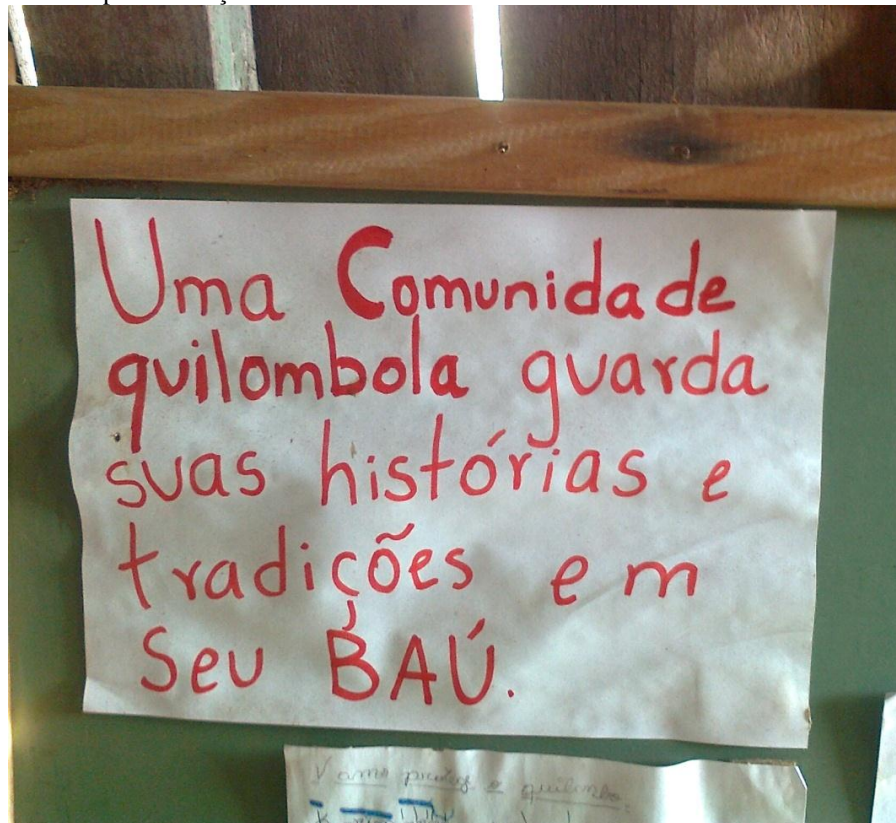 Uma Comunidade
quilombola guarda
suas histórias e
tradições em
Seu BAÚ.
o quilombo